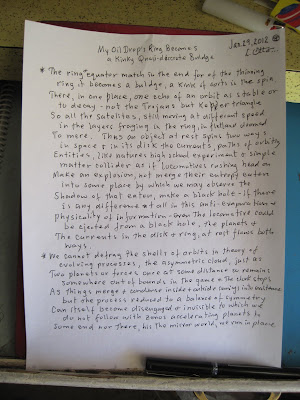 My Oil Drop's Ring Becomes
a Kinky Quasi-discrete Buldge
Jan 29, 2012
* The ring equator match in the end for if the thinning
ring it becomes a buldge, a kink of sorts in the spin,
There, in one place, one echo of an orbit as stable or
to decay - not the Trojans but Keppler triangle
So all the satellites, still moving at different speed
in the layers fraying in the ring, in flatland
To mere. Thus an object at rest spins two ways
in space & in its disk the currents, paths of orbility
Entities, like natures high school experiment or simple
matter collider as if locomotives rushing head on
Make an explosion, not merge their entropy enters
into some place by which we may observe the
Shadow of that enter, make a black hole - if there
is any difference at all in this anti-evaporation &
Physicality of information - Even the locomotive could
be ejected from a black hole, the planets &
The currents in the disk & ring, at rest flows both
ways.
* We cannot defrag the shells of orbits in theory of
evolving processes, the asymmetric cloud, just as
Two planets or forces once at some distance so remains
somewhere out of bounds in the game & the clock stops
As things merge & condense inside & outside comings into existence
but the process reduced to a balance of symmetry
Can itself become disengaged & invisible to which we
do not follow with zenos accelerating planets to
Some end nor There, his the mirror world, we run in place